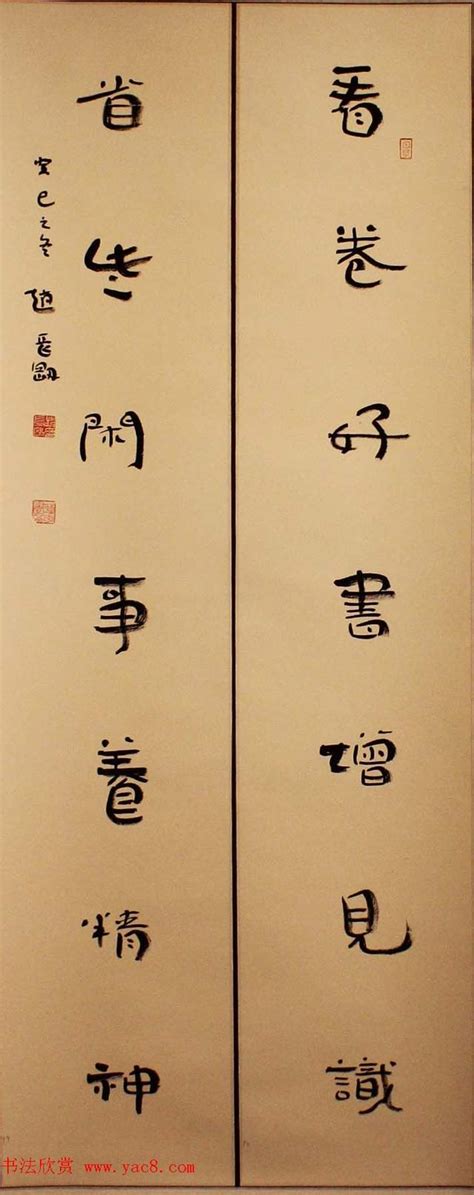 看卷好書增見識
省些閑事養精神
癸巳之冬
趙長剛
书法欣赏 www.yac8.com